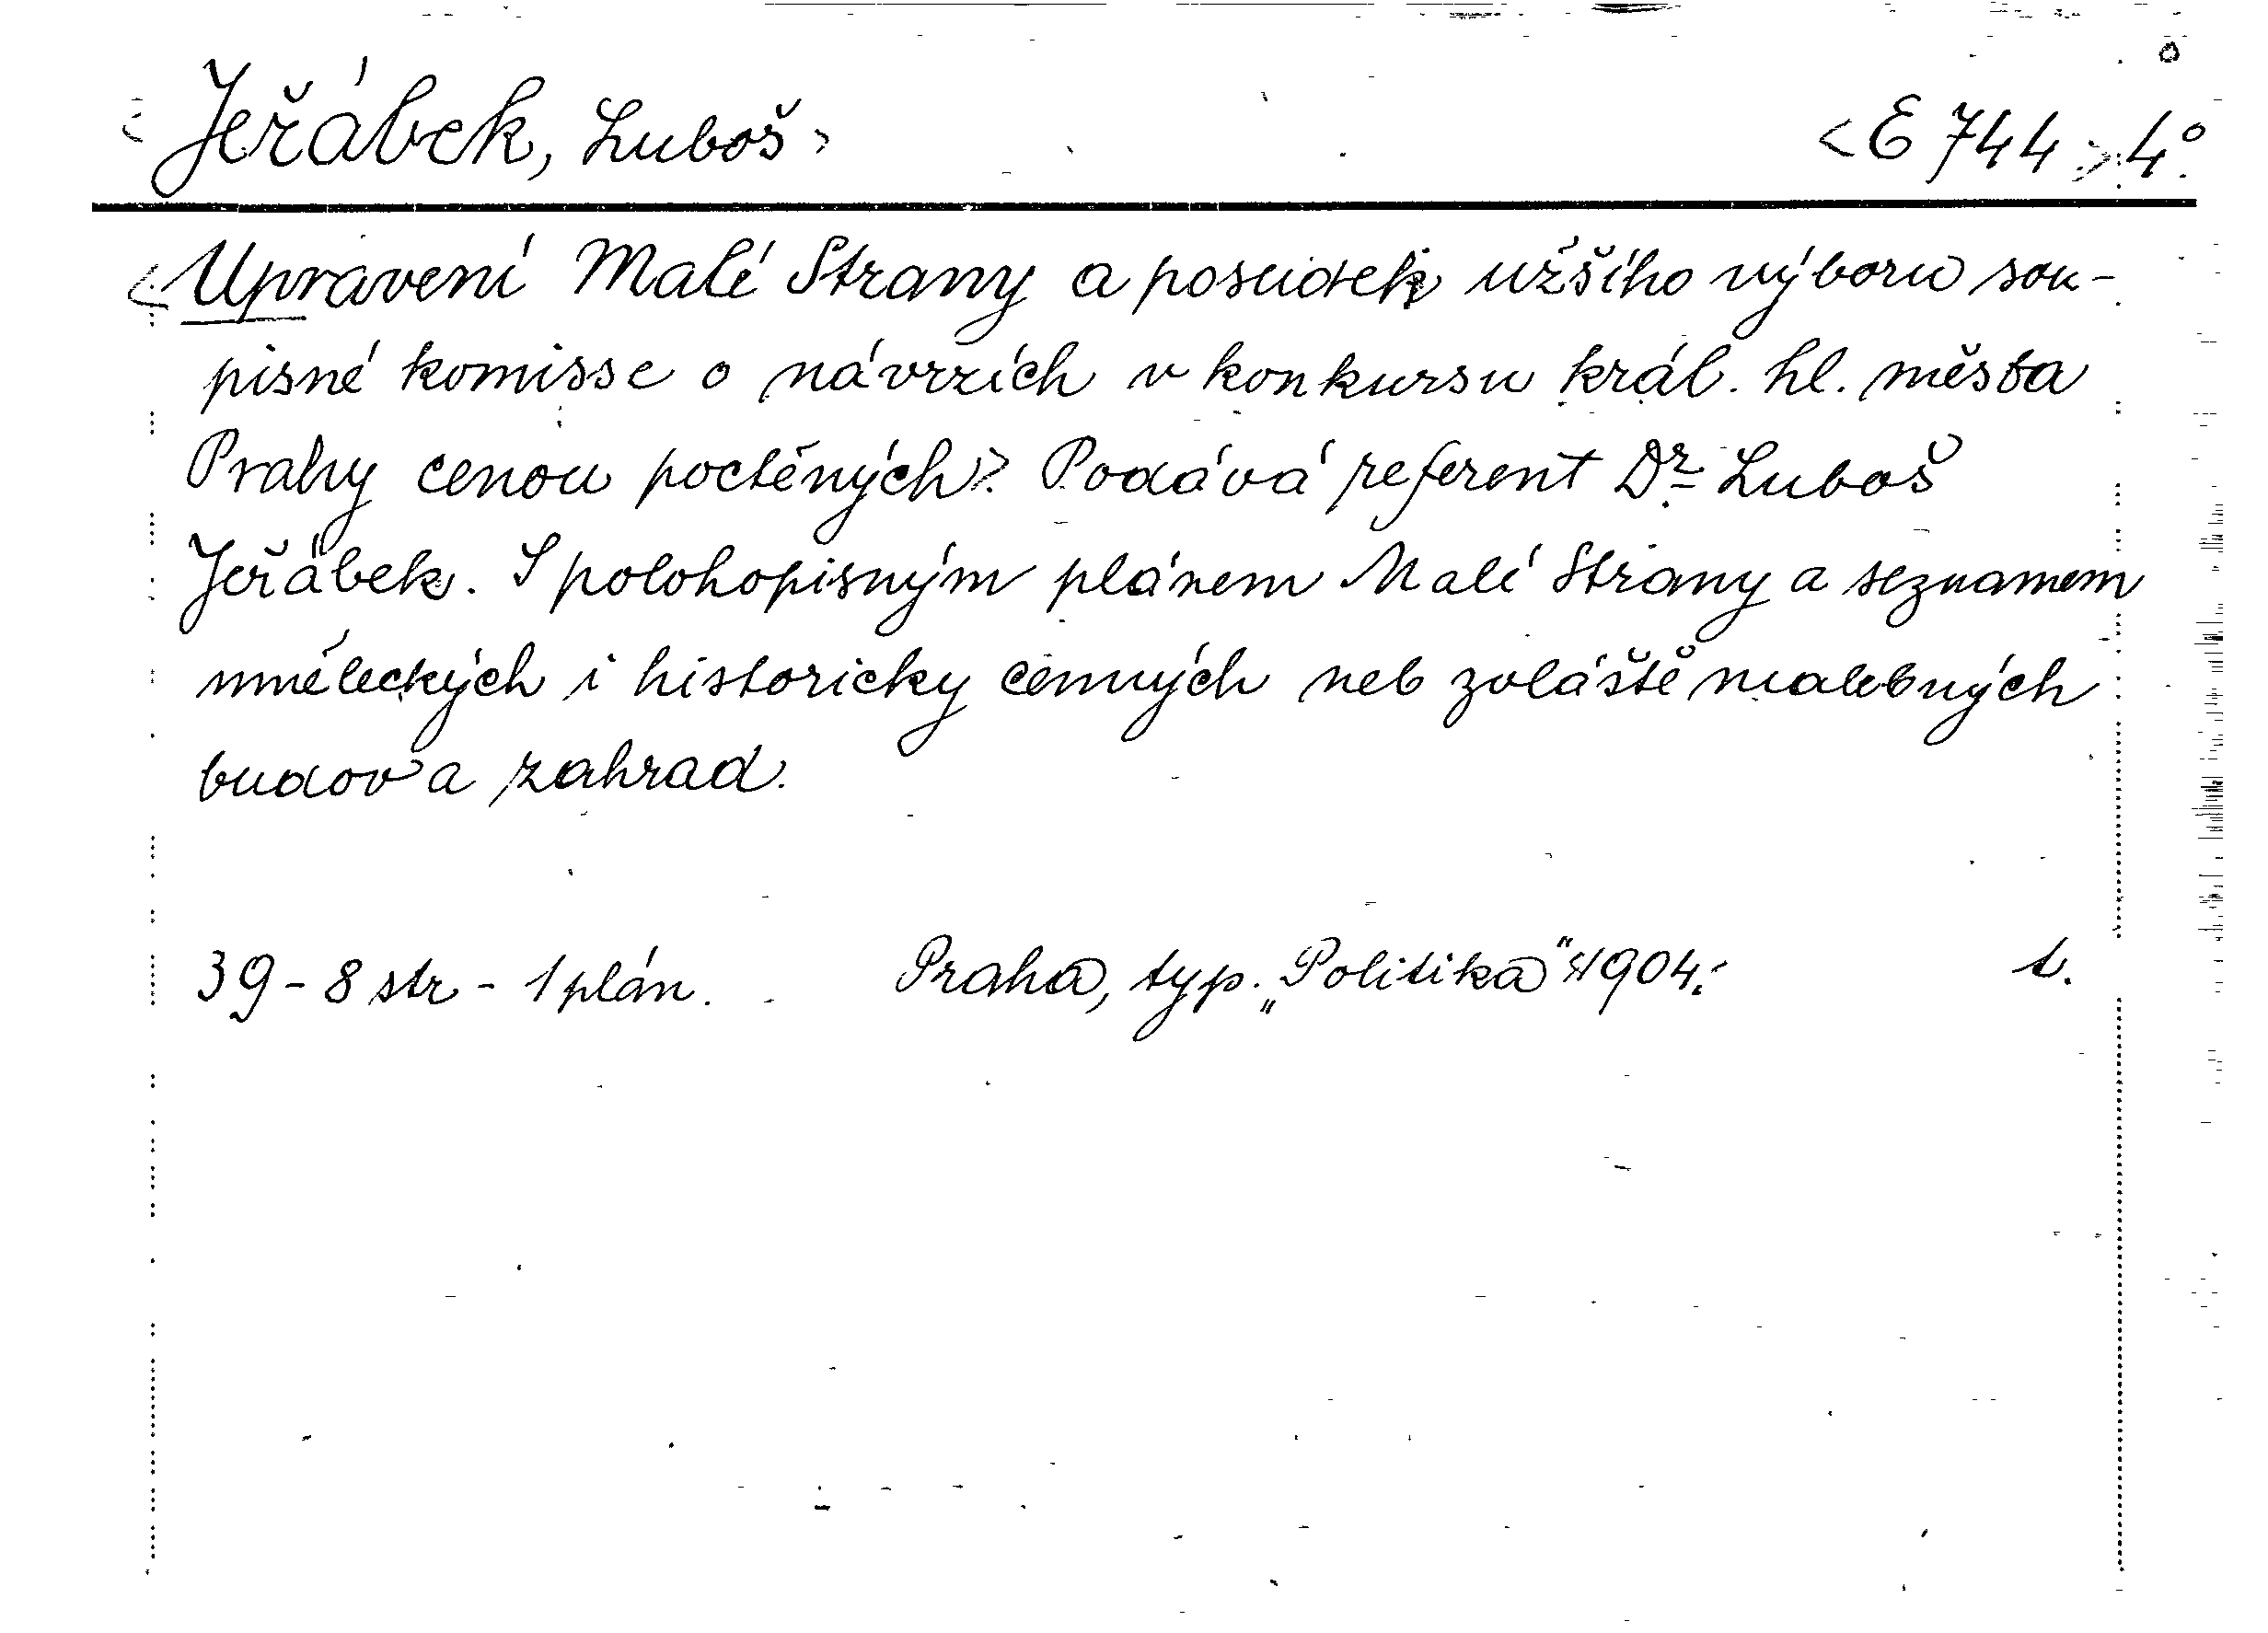 <Jeřábek, Luboš> <E 744> 4°
<Upravení Malé Strany a posudek užšího výboru sou-
pisné komisse o návrzích v konkursu král. hl. města
Prahy cenou poctěných>. Podává referent Dr Luboš
Jeřábek. S polohopisným plánem Malé Strany a seznamem
uměleckých i historicky cenných neb zvláště malebných
budov a zahrad.
39 - 8 str - 1 plán. Praha, typ. „Politika" <1904. t.